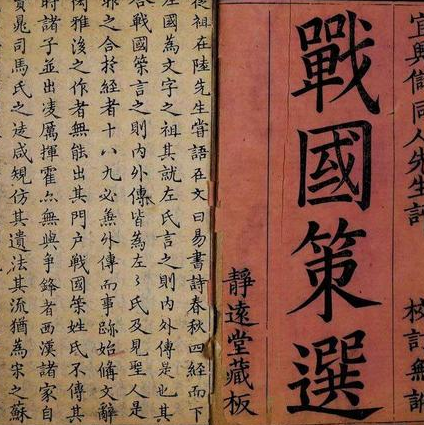 宜興儲同人先生評
校訂無訛
戰國策選
靜遠堂藏板
從祖在陸先生嘗語在文曰易書詩春秋四經而下
左國為文字之祖其就左氏言之則内外傳是也其
合戰國策言之則内外傳皆為左〻氏及見聖人是
非之合於經者十八九必無外傳而事跡始備文辭
閎雅後之作者無能出其門户戰國策姓氏不傳其
時諸子並出凌厲揮霍無與爭鋒者西漢諸家自
賈晁司馬氏之徒咸規仿其遺法其流猶為宋之蘇